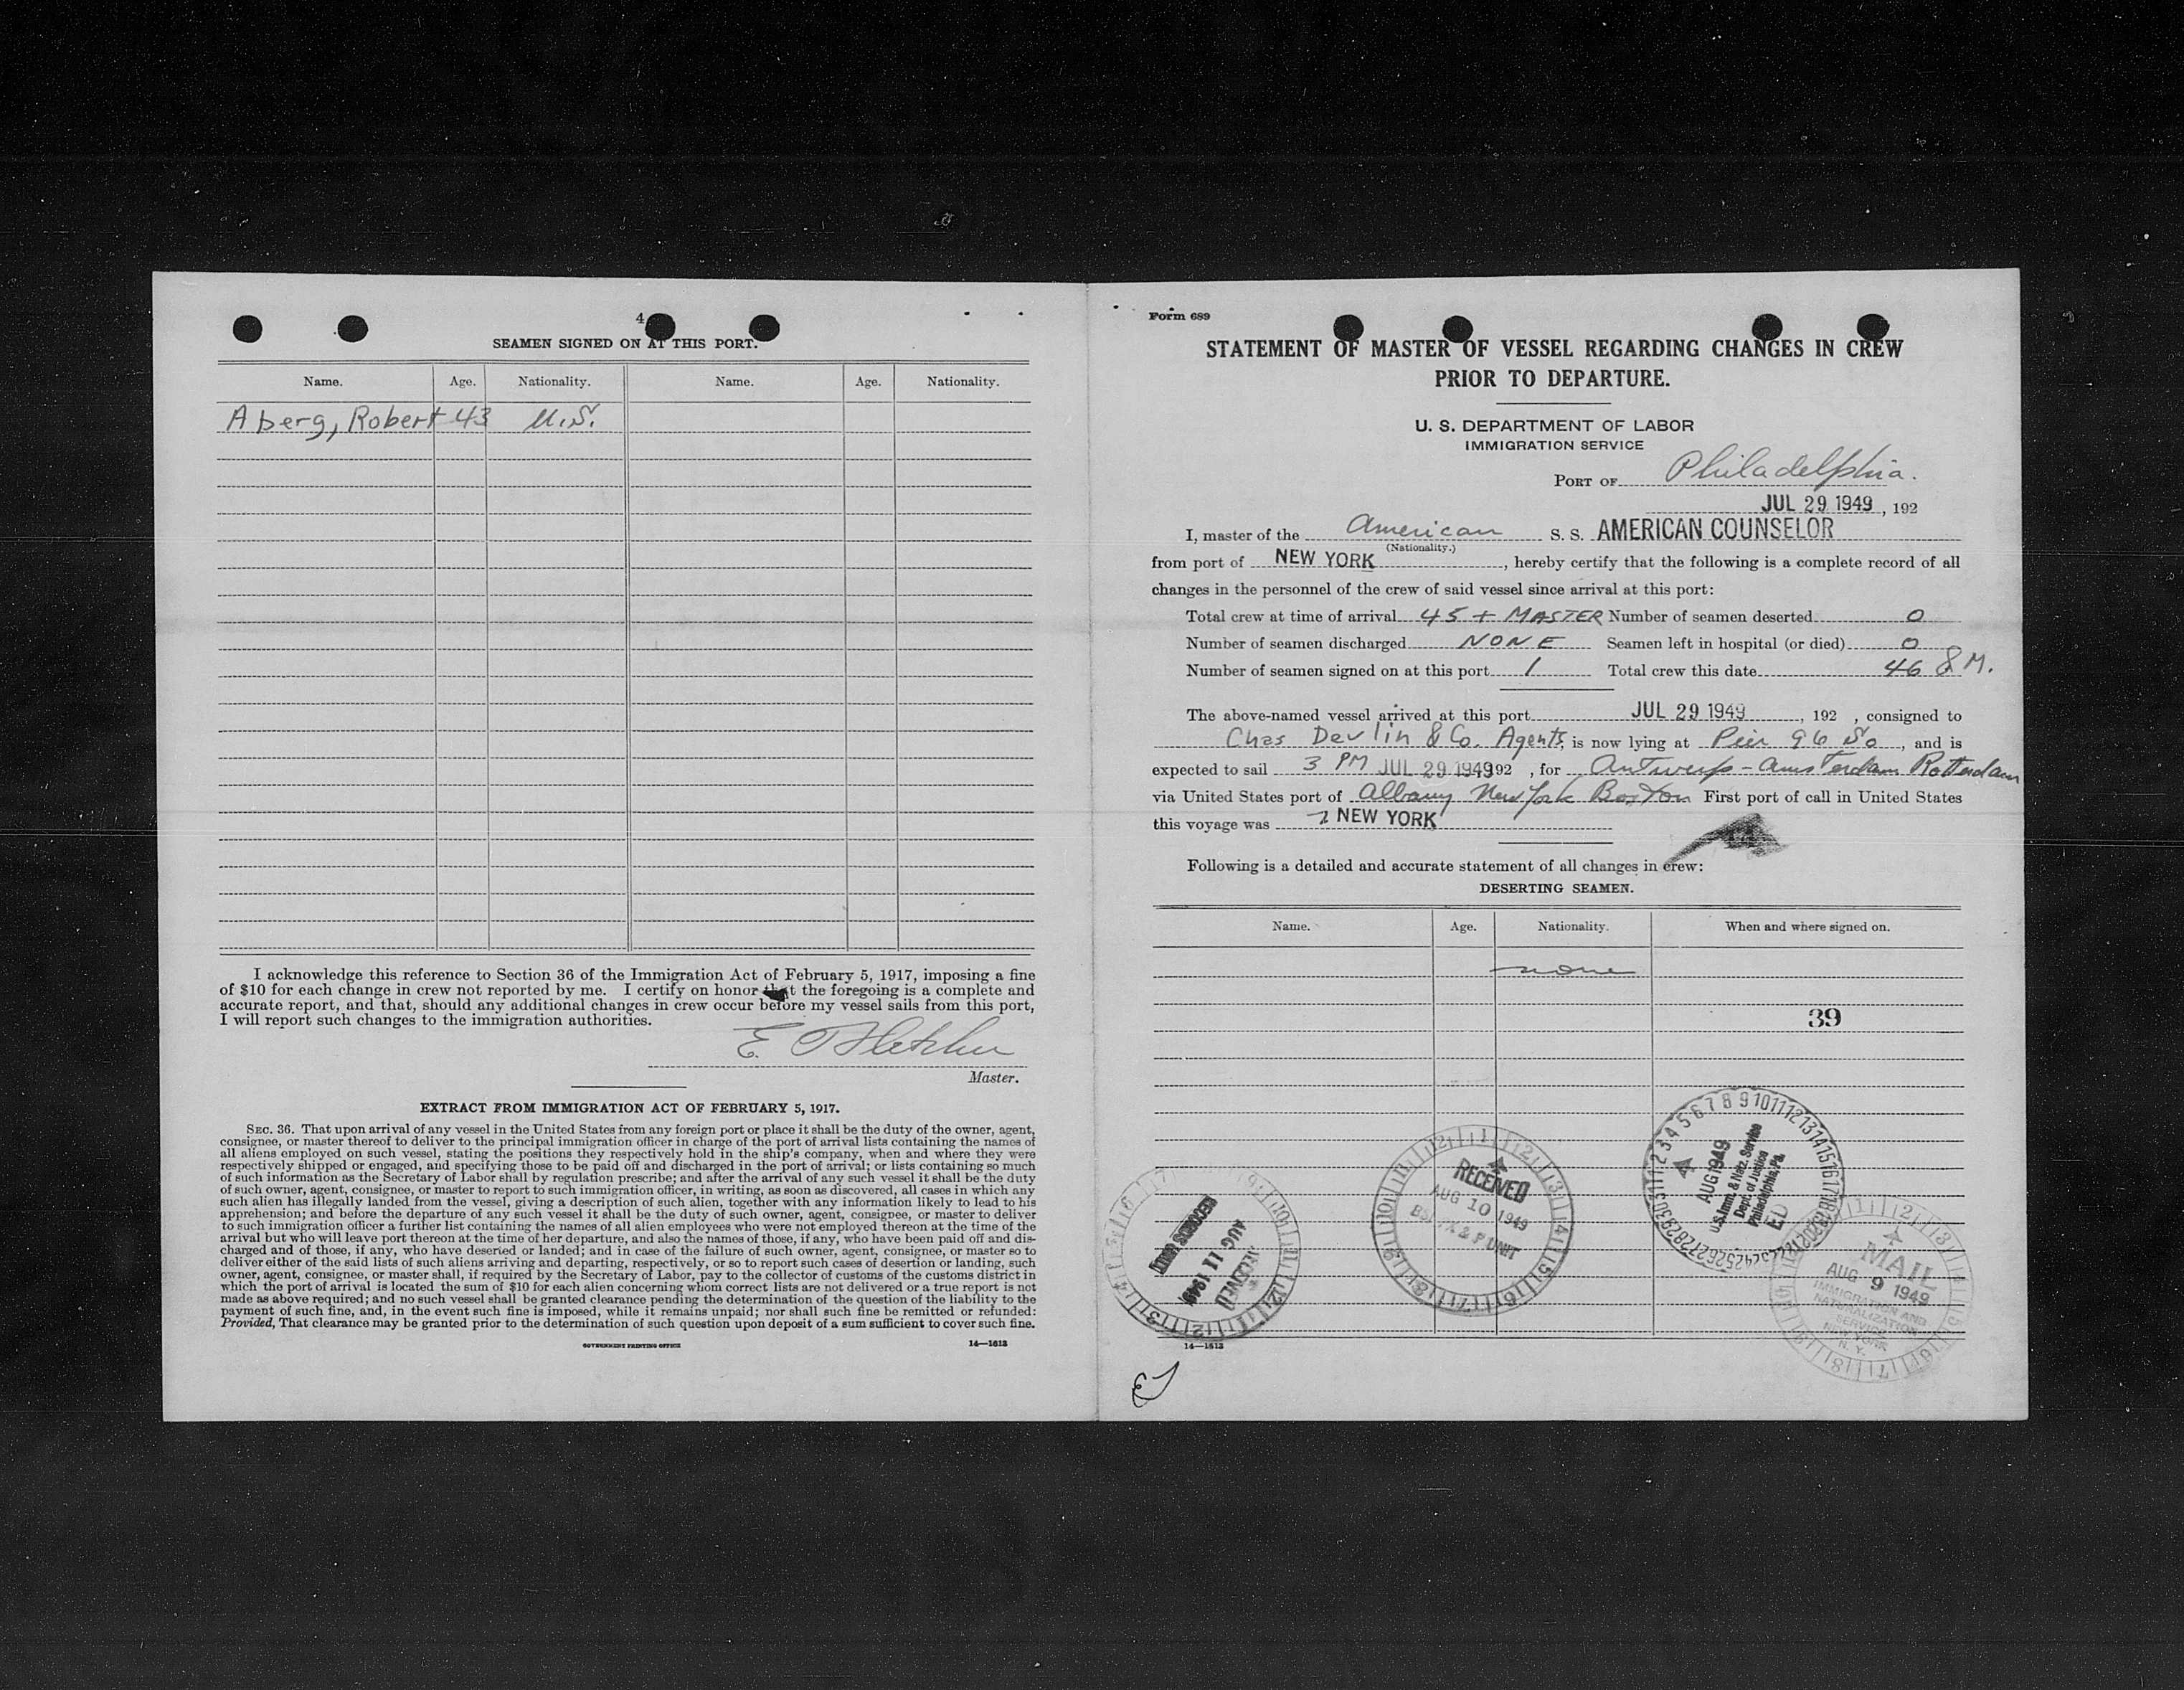 4
SEAMEN SIGNED ON AT THIS PORT.
Name. Age. Nationality. Name. Age. Nationality.
Aberg, Robert 43 U.S.
I acknowledge this reference to Section 36 of the Immigration Act of February 5, 1917, imposing a fine
of $10 for each change in crew not reported by me. I certify on honor that the foregoing is a complete and
accurate report, and that, should any additional changes in crew occur before my vessel sails from this port,
I will report such changes to the immigration authorities.
E. Fletcher
Master.
EXTRACT FROM IMMIGRATION ACT OF FEBRUARY 5, 1917.
SEC. 36. That upon arrival of any vessel in the United States from any foreign port or place it shall be the duty of the owner, agent,
consignee, or master thereof to deliver to the principal immigration officer in charge of the port of arrival lists containing the names of
all aliens employed on such vessel, stating the positions they respectively hold in the ship's company, when and where they were
respectively shipped or engaged, and specifying those to be paid off and discharged in the port of arrival; or lists containing so much
of such information as the Secretary of Labor shall by regulation prescribe; and after the arrival of any such vessel it shall be the duty
of such owner, agent, consignee, or master to report to such immigration officer, in writing, as soon as discovered, all cases in which any
such alien has illegally landed from the vessel, giving a description of such alien, together with any information likely to lead to his
apprehension; and before the departure of any such vessel it shall be the duty of such owner, agent, consignee, or master to deliver
to such immigration officer a further list containing the names of all alien employees who were not employed thereon at the time of the
arrival but who will leave port thereon at the time of her departure, and also the names of those, if any, who have been paid off and dis-
charged and of those, if any, who have deserted or landed; and in case of the failure of such owner, agent, consignee, or master so to
deliver either of the said lists of such aliens arriving and departing, respectively, or so to report such cases of desertion or landing, such
owner, agent, consignee, or master shall, if required by the Secretary of Labor, pay to the collector of customs of the customs district in
which the port of arrival is located the sum of $10 for each alien concerning whom correct lists are not delivered or a true report is not
made as above required; and no such vessel shall be granted clearance pending the determination of the question of the liability to the
payment of such fine, and, in the event such fine is imposed, while it remains unpaid; nor shall such fine be remitted or refunded:
Provided, That clearance may be granted prior to the determination of such question upon deposit of a sum sufficient to cover such fine.
GOVERNMENT PRINTING OFFICE 14—1613
Form 689
STATEMENT OF MASTER OF VESSEL REGARDING CHANGES IN CREW
PRIOR TO DEPARTURE.
U. S. DEPARTMENT OF LABOR
IMMIGRATION SERVICE
PORT OF Philadelphia.
JUL 29 1949, 192
I, master of the American S. S. AMERICAN COUNSELOR
(Nationality.)
from port of NEW YORK, hereby certify that the following is a complete record of all
changes in the personnel of the crew of said vessel since arrival at this port:
Total crew at time of arrival 45 + MASTER Number of seamen deserted 0
Number of seamen discharged NONE Seamen left in hospital (or died) 0
Number of seamen signed on at this port 1 Total crew this date 46 & M.
The above-named vessel arrived at this port JUL 29 1949, 192 , consigned to
Chas Devlin & Co. Agents, is now lying at Pier 96 So, and is
expected to sail 3 PM JUL 29 1949 192 , for Antwerp - Amsterdam Rotterdam
via United States port of Albany New York Boston First port of call in United States
this voyage was NEW YORK
Following is a detailed and accurate statement of all changes in crew:
DESERTING SEAMEN.
Name. Age. Nationality. When and where signed on.
none
39
AUG 1949
U.S. Imm. & Natz. Service
Dept. of Justice
Philadelphia, Pa.
RECEIVED
AUG 10 1949
MAIL
AUG 9 1949
IMMIGRATION AND
NATURALIZATION
SERVICE
NEW YORK
N. Y.
RECEIVED
AUG 11 1949
14—1613